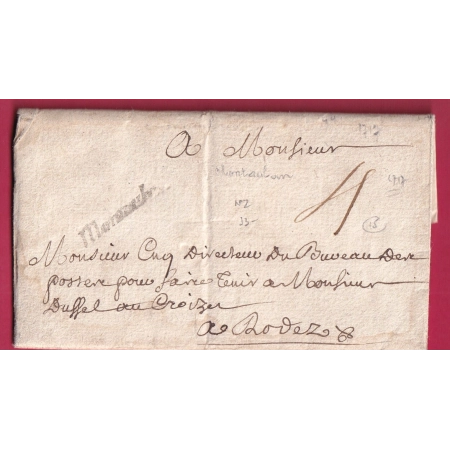 1717
A Monsieur
Montauban
1717
N2
35-
4
15
Montauban
Monsieur Cuq Directeur Du Bureau Des
postes pour faire tenir a Monsieur
Dussel au Croizet
a Rodez